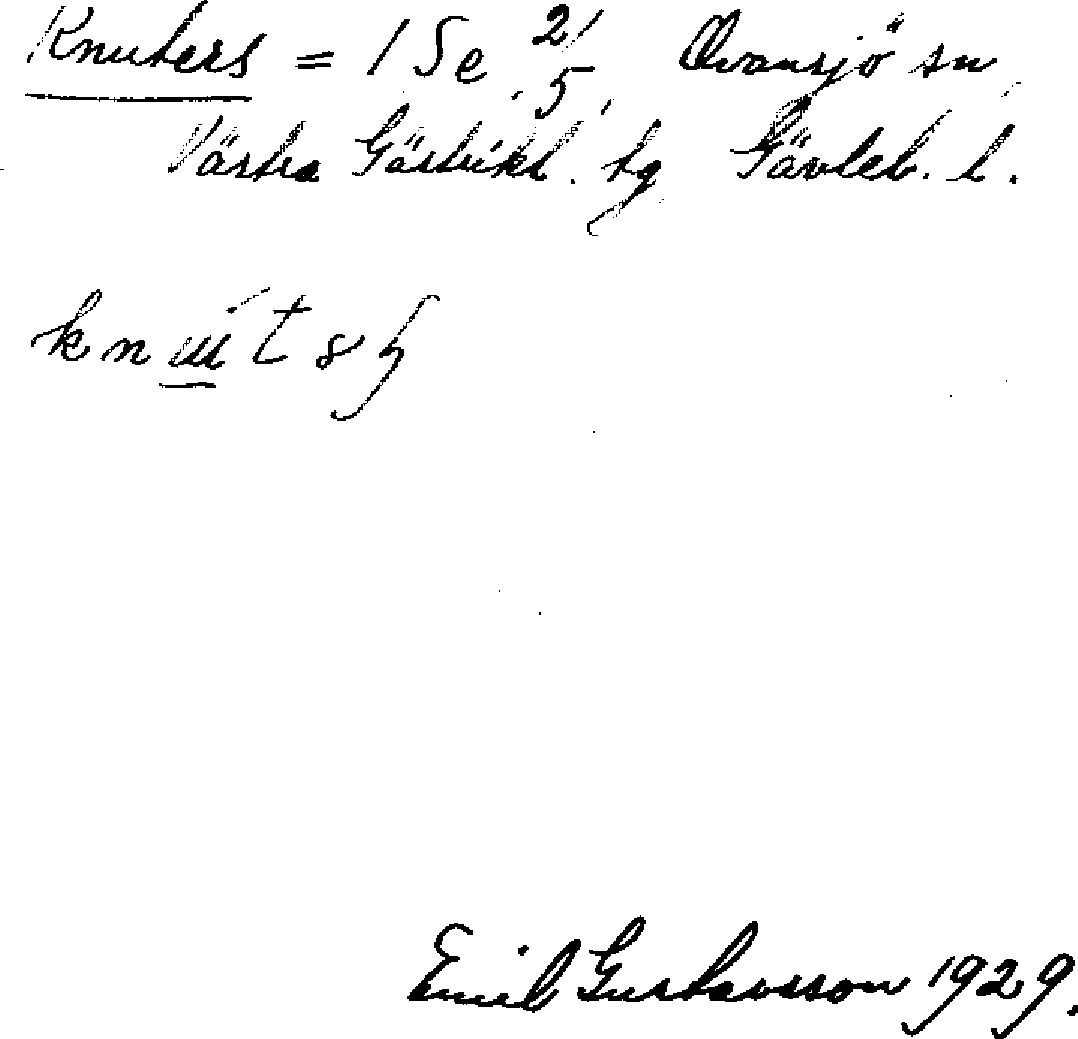 Knuters = 1 Se 2/5 Ovansjö sn
Västra Gästrikl. tg Gävleb. l.
Emil Gustavsson 1929.